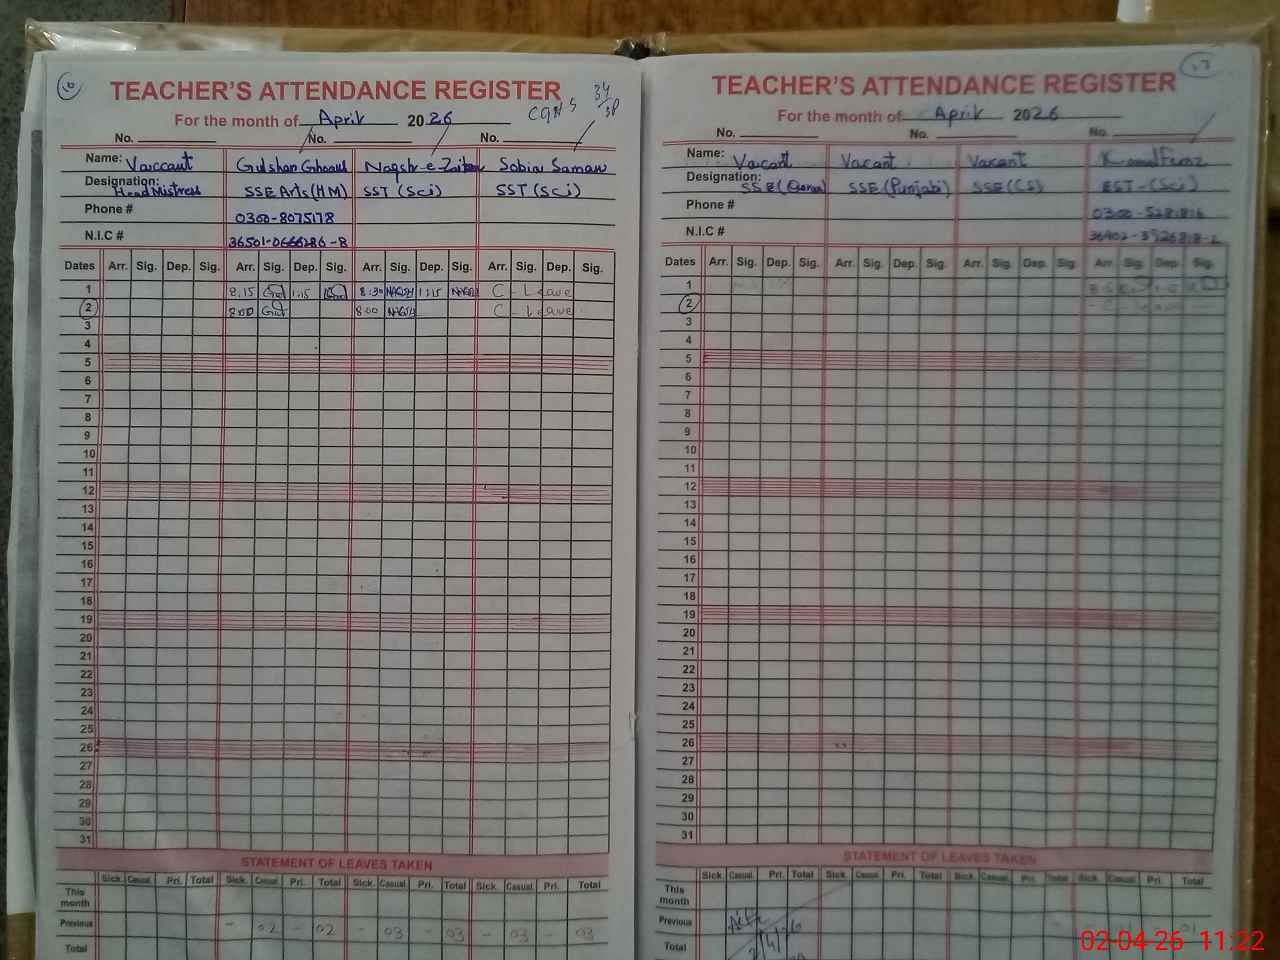 TEACHER'S ATTENDANCE REGISTER
34
38
For the month of April 2026
No. No. No.
Name: Vaccant Gulshan Ghous Naqsh-e-Zahra Sobia Saman
Designation: Head Mistress SSE Arts (HM) SST (Sci) SST (Sci)
Phone # 0300-8075178
N.I.C # 36501-0666286-8
Dates Arr. Sig. Dep. Sig. Arr. Sig. Dep. Sig. Arr. Sig. Dep. Sig. Arr. Sig. Dep. Sig.
1 8:15 1:15 8:30 NAQSH 1:15 NAQSH C - Leave
2 8:00 8:00 NAQSH C - Leave
3
4
5
6
7
8
9
10
11
12
13
14
15
16
17
18
19
20
21
22
23
24
25
26
27
28
29
30
31
STATEMENT OF LEAVES TAKEN
Sick. Casual. Pri. Total Sick. Casual. Pri. Total Sick. Casual. Pri. Total Sick. Casual. Pri. Total
This month
Previous - 02 - 02 - 03 - 03 - 03 - 03
Total
TEACHER'S ATTENDANCE REGISTER
For the month of April 2026
No. No. No.
Name: Vacant Vacant Vacant
Designation: SSE (Punjabi) SSE (CS) EST - (Sci)
Phone #
N.I.C #
Dates Arr. Sig. Dep. Sig. Arr. Sig. Dep. Sig. Arr. Sig. Dep. Sig. Arr. Sig. Dep. Sig.
1
2
3
4
5
6
7
8
9
10
11
12
13
14
15
16
17
18
19
20
21
22
23
24
25
26
27
28
29
30
31
STATEMENT OF LEAVES TAKEN
Sick. Casual. Pri. Total Sick. Casual. Pri. Total Sick. Casual. Pri. Total Sick. Casual. Pri. Total
This month
Previous 01
Total
02-04-26 11:22